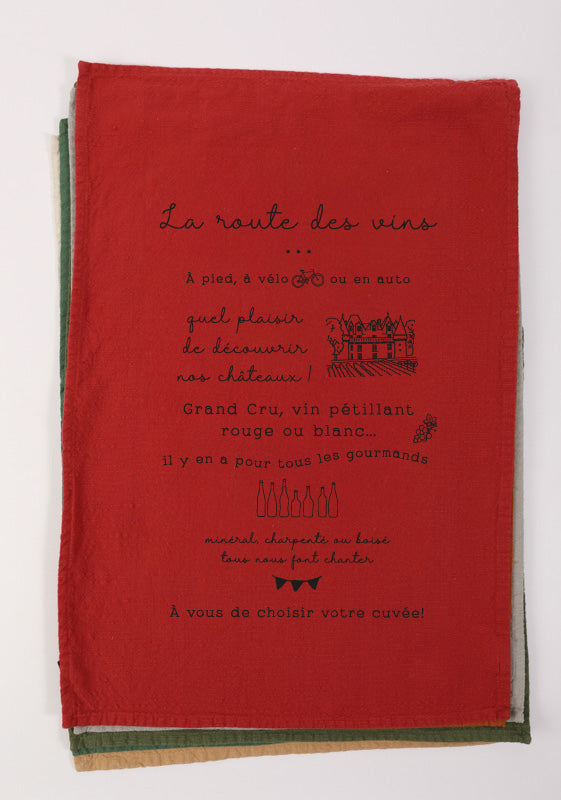 La route des vins
À pied, à vélo ou en auto
quel plaisir
de découvrir
nos châteaux !
Grand Cru, vin pétillant
rouge ou blanc...
il y en a pour tous les gourmands
minéral, charpenté ou boisé
tous nous font chanter
À vous de choisir votre cuvée!